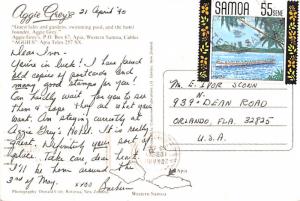 Aggie Grey's 21 April '90
"Guest bales and gardens, swimming pool, and the hotel
founder, Aggie Grey."
Aggie Grey's, P.O. Box 67, Apia, Western Samoa, Cables
"AGGIES" Apia Telex 257 SX.
Dear Ivor —
You're in luck! I has found
old copies of postcards and
many good stamps for you!
Can hardly wait for you to see
them & hope they at what your
want. Am staying currently at
Aggie Grey's Hotel. It is really
great. Definitely your sort of
place. Take care dear heart.
I'll be home around the
2nd of May.
xxoo Barbara
Photography Donald
Western Samoa
SAMOA 55 SENE
M. E. IVOR
939- DEAN ROAD
ORLANDO, FLA. 32825
U.S.A.